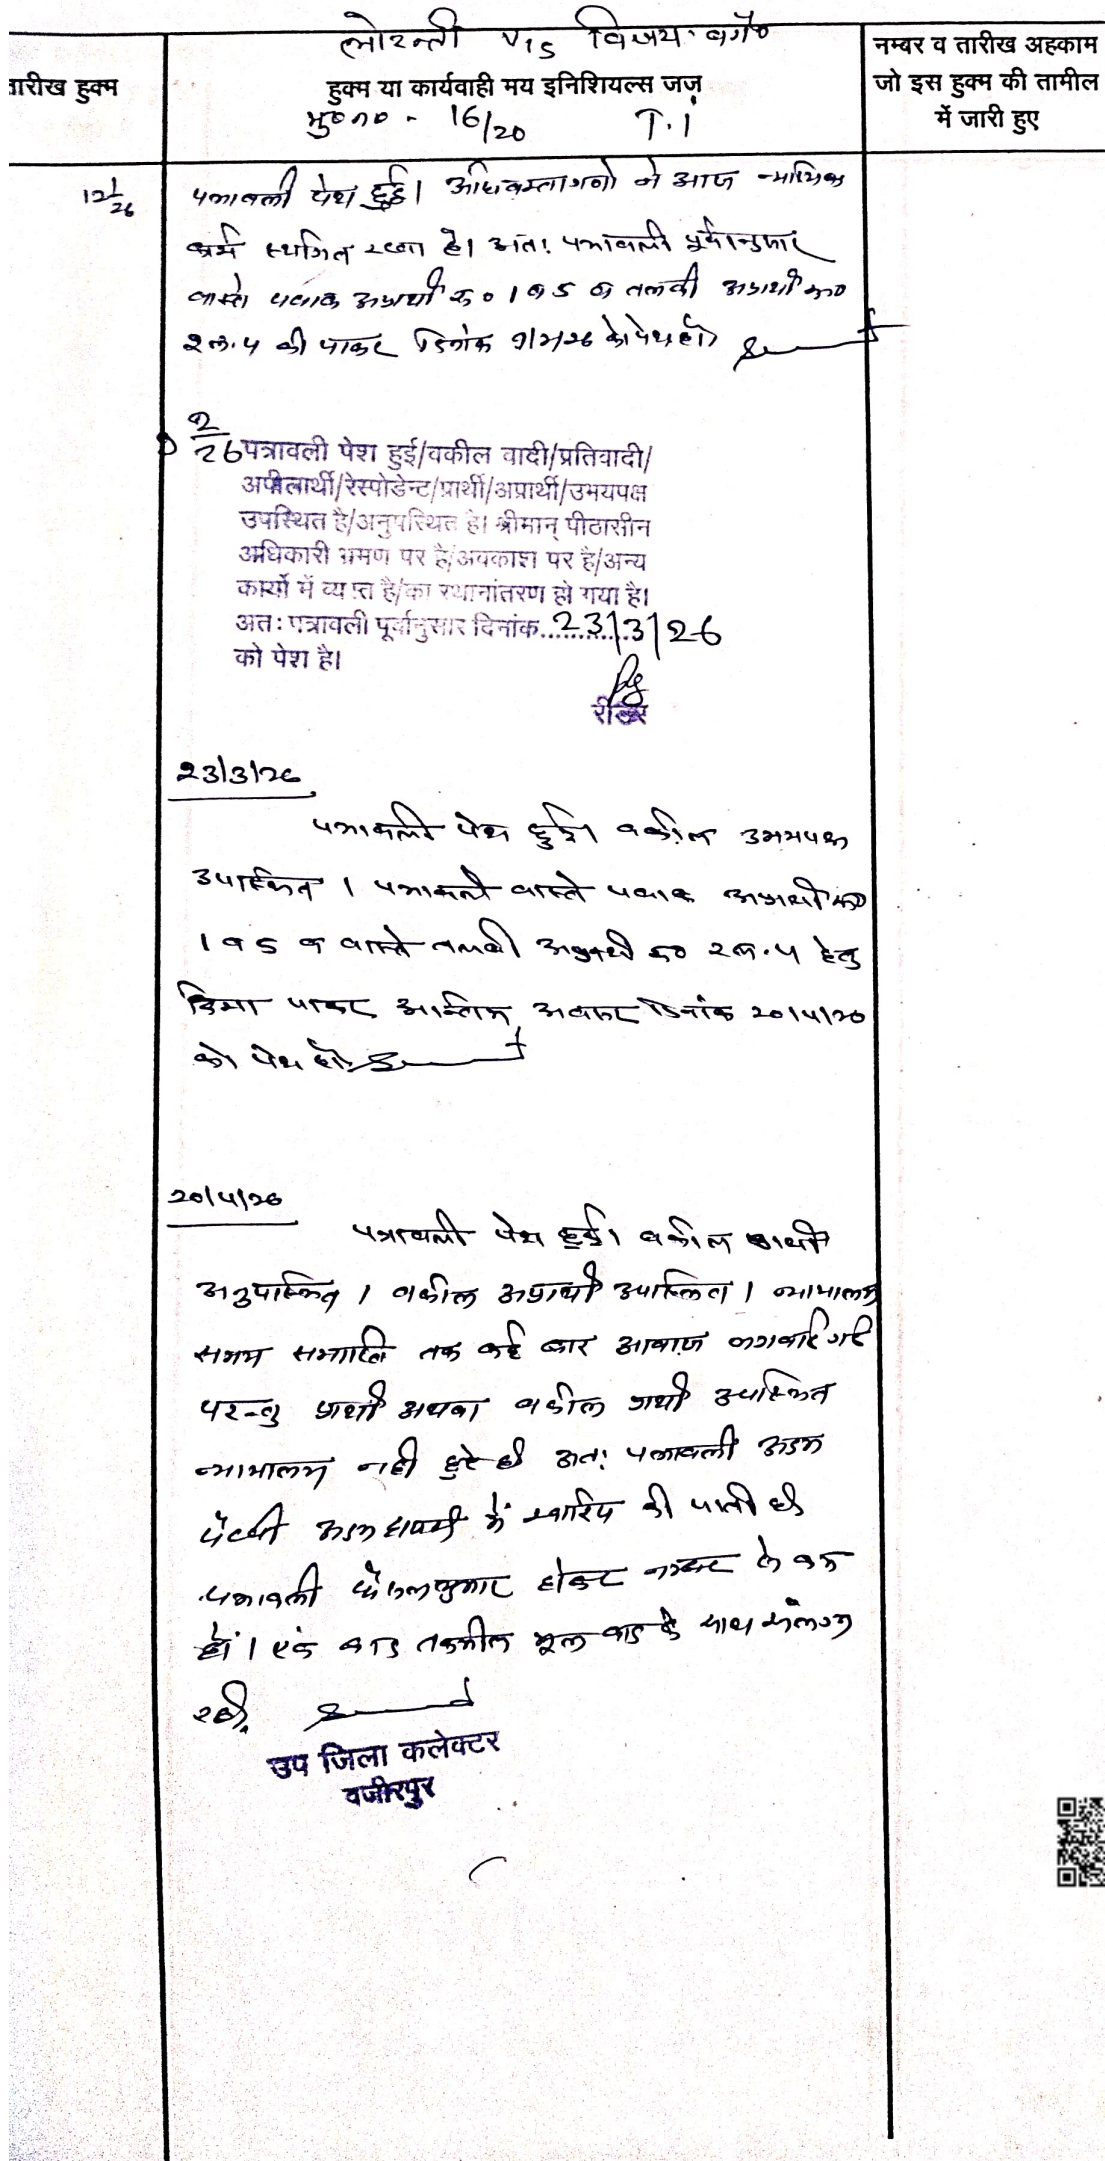 मोरन्ती V/S विजय वगै०
तारीख हुक्म
हुक्म या कार्यवाही मय इनिशियल्स जज
नम्बर व तारीख अहकाम
जो इस हुक्म की तामील
में जारी हुए
मु०न० - 16/20 T.I
12/1/26
पत्रावली पेश हुई। अधिवक्तागणो ने आज न्यायिक
कार्य स्थगित रखा है। अतः पत्रावली पूर्वानुसार
वास्ते जवाब अप्रार्थी क्र० 1 व 5 व तलबी अप्रार्थी क्र०
2 ल. 4 की जाकर दिनांक 9/2/26 को पेश हो
9/2/26
पत्रावली पेश हुई/वकील वादी/प्रतिवादी/
अपीलार्थी/रेस्पोडेन्ट/प्रार्थी/अप्रार्थी/उभयपक्ष
उपस्थित है/अनुपस्थित है। श्रीमान् पीठासीन
अधिकारी भ्रमण पर है/अवकाश पर है/अन्य
कार्यो में व्यस्त है/का स्थानांतरण हो गया है।
अतः पत्रावली पूर्वानुसार दिनांक..23/3/26
को पेश है।
रीडर
23/3/26
पत्रावली पेश हुई। वकील उभयपक्ष
उपस्थित। पत्रावली वास्ते जवाब अप्रार्थी क्र०
1 व 5 व वास्ते तलबी अप्रार्थी क्र० 2 ल. 4 हेतु
दिया जाकर अन्तिम अवसर दिनांक 20/4/20
को पेश हो
20/4/26
पत्रावली पेश हुई। वकील प्रार्थी
अनुपस्थित। वकील अप्रार्थी उपस्थित। न्यायालय
समय समाप्ति तक कई बार आवाज लगवाई गई
परन्तु प्रार्थी अथवा वकील प्रार्थी उपस्थित
न्यायालय नही हुए है अतः पत्रावली अदम
पैरवी अदम हाजरी में खारिज की जाती है
पत्रावली फैसलशुमार होकर नम्बर से कम
हो। एवं बाद तकमील मूल वाद के साथ संलग्न
रहे।
उप जिला कलेक्टर
वजीरपुर